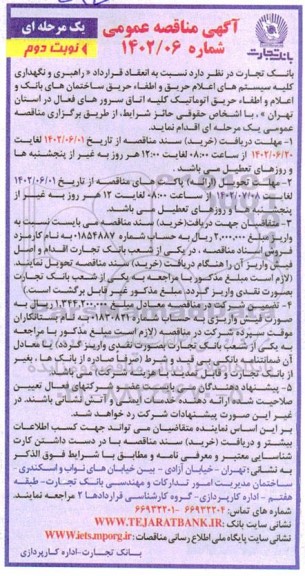 بانک تجارت
آگهی مناقصه عمومی
شماره ۱۴۰۲/۰۶
یک مرحله ای
نوبت دوم
بانک تجارت در نظر دارد نسبت به انعقاد قرارداد « راهبری و نگهداری
کلیه سیستم های اعلام حریق و اطفاء حریق ساختمان های بانک و
اعلام و اطفاء حریق اتوماتیک کلیه اتاق سرور های فعال در استان
تهران » ، با اشخاص حقوقی حائز شرایط، از طریق برگزاری مناقصه
عمومی یک مرحله ای اقدام نماید.
۱- مهلت دریافت (خرید) سند مناقصه از تاریخ ۱۴۰۲/۰۶/۰۱ لغایت
۱۴۰۲/۰۶/۲۰ از ساعت ۰۸:۰۰ لغایت ۱۲:۰۰ هر روز به غیر از پنجشنبه ها
و روزهای تعطیل می باشد .
۲- مهلت تحویل (ارائه) پاکت های مناقصه از تاریخ ۱۴۰۲/۰۶/۰۱
لغایت ۱۴۰۲/۰۷/۰۸ از ساعت ۰۸:۰۰ لغایت ۱۲ هر روز به غیر از
پنجشنبه ها و روزهای تعطیل می باشد
۳- متقاضیان جهت دریافت (خرید) سند مناقصه می بایست نسبت به
واریز مبلغ ۲,۰۰۰,۰۰۰ ریال به حساب شماره ۰۱۸۵۴۸۸۷ به نام کارمزد
فروش اسناد مناقصه ، در یکی از شعب بانک تجارت اقدام و اصل
فیش واریز آن را هنگام دریافت (خرید) سند مناقصه تحویل نمایند.
لازم است مبلغ مذکور با مراجعه به یکی از شعب بانک تجارت
بصورت نقدی واریز گردد (مبلغ مذکور غیر قابل برگشت است)
۴- تضمین شرکت در مناقصه معادل مبلغ ۱,۳۴۴,۲۰۰,۰۰۰ ریال به
صورت فیش واریزی به حساب شماره ۱۸۳۰۸۲۱۰ به نام بستانکاران
موقت سپرده شرکت در مناقصه (لازم است مبلغ مذکور با مراجعه
به یکی از شعب بانک تجارت بصورت نقدی واریز گردد) یا معادل
آن ضمانتنامه بانکی بی قید و شرط (صرفا صادره از بانک ها ، بغیر
از بانک تجارت و قابل تمدید تا هر
۵- پیشنهاد دهندگان می بایست عضو شرکتهای فعال تعیین
صلاحیت شده ارائه دهنده خدمات ایمنی و آتش نشانی باشند. در
غیر این صورت پیشنهادات شرکت رد خواهد شد.
بر این اساس نماینده متقاضیان می تواند جهت کسب اطلاعات
بیشتر و دریافت (خرید) سند مناقصه با در دست داشتن کارت
شناسایی معتبر و معرفی نامه و مطابق با شرایط فوق الذکر
به نشانی : تهران - خیابان آزادی - بین خیابان های نواب و اسکندری -
ساختمان مدیریت امور تدارکات و مهندسی بانک تجارت- طبقه
هفتم - اداره کارپردازی - گروه کارشناسی قراردادها ۲ مراجعه نمایند.
شماره های تماس: ۶۶۹۳۲۲۰۴ - ۶۶۹۳۲۲۰۱
نشانی سایت بانک : WWW.TEJARATBANK.IR
نشانی سایت پایگاه ملی اطلاع رسانی مناقصات: WWW.iets.mporg.ir
بانک تجارت-اداره کارپردازی